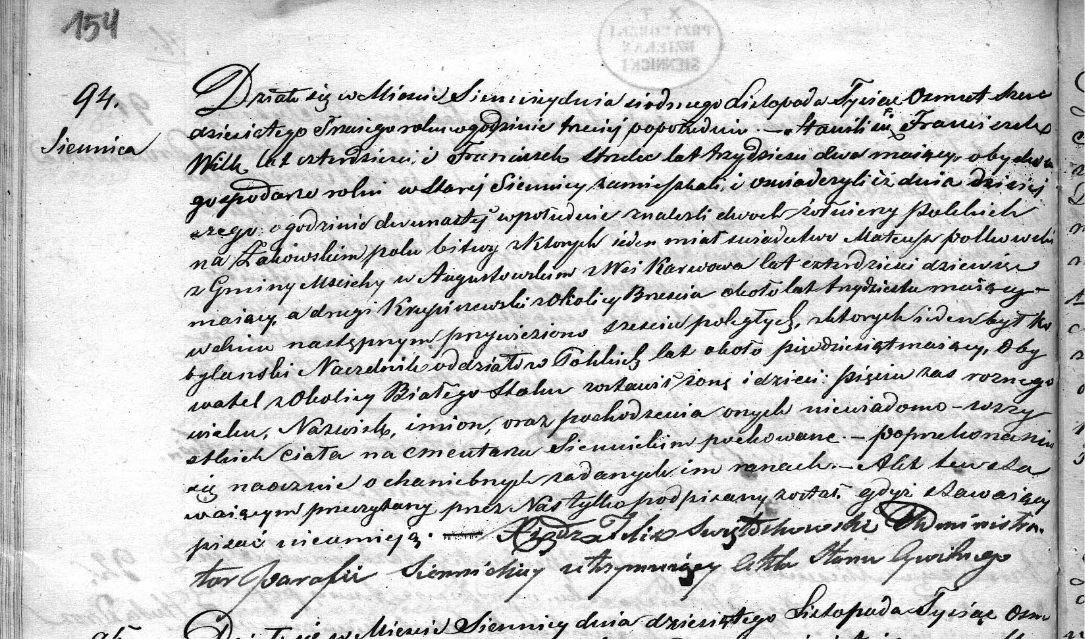 154
X T
PRZYWORSKI
DZIEKAN
SIENNICKI
94.
Siennica
Działo się w Mieście Siennicy dnia siodmego Listopada Tysiąc Osmset sześć
dziesiątego Trzeciego roku o godzinie trzeciej popołudniu. — Stawili się Franciszek
Wilk lat czterdzieści, i Franciszek Strzelec lat trzydzieści dwa maiący, obydwa
gospodarze rolni w Starej Siennicy zamieszkali, i oswiadczyli iż dnia dzisiej
szego o godzinie dwunastej w południe znalezli dwoch żołnierzy polskich
na Żakowskim polu bitwy z ktorych ieden miał swiadectwo Mateusz polkowski
z Gminy Mscichy w Augustowskim z Wsi Karwowa lat czterdzieści dziewięć
maiący, a drugi Krupiszewski z Okolicy Brescia około lat trzydziestu maiący —
w dniu następnym przywieziono sześciu poległych, z ktorych ieden był Ko
bylanski Naczelnik oddziałow Polskich lat około pięcdziesiąt maiący, Oby
watel z Okolicy Białego Stoku zostawił żonę i dzieci: pięciu zas roznego
wieku, Nazwisk, imion, oraz pochodzenia onych niewiadomo — wszy
stkich ciała na cmentarzu Siennickim pochowane. — po przekonaniu
się naocznie o haniebnych zadanych im ranach. — Akt ten sta
waiącym przeczytany przez Nas tylko podpisany został, gdyż stawaiący
pisać nieumieią.
Xiądz Administra
tor Parafii Siennickiej utrzymuiący Akta Stanu Cywilnego
95.
Działo się w Mieście Siennicy dnia dziesiątego Listopada Tysiąc Osm